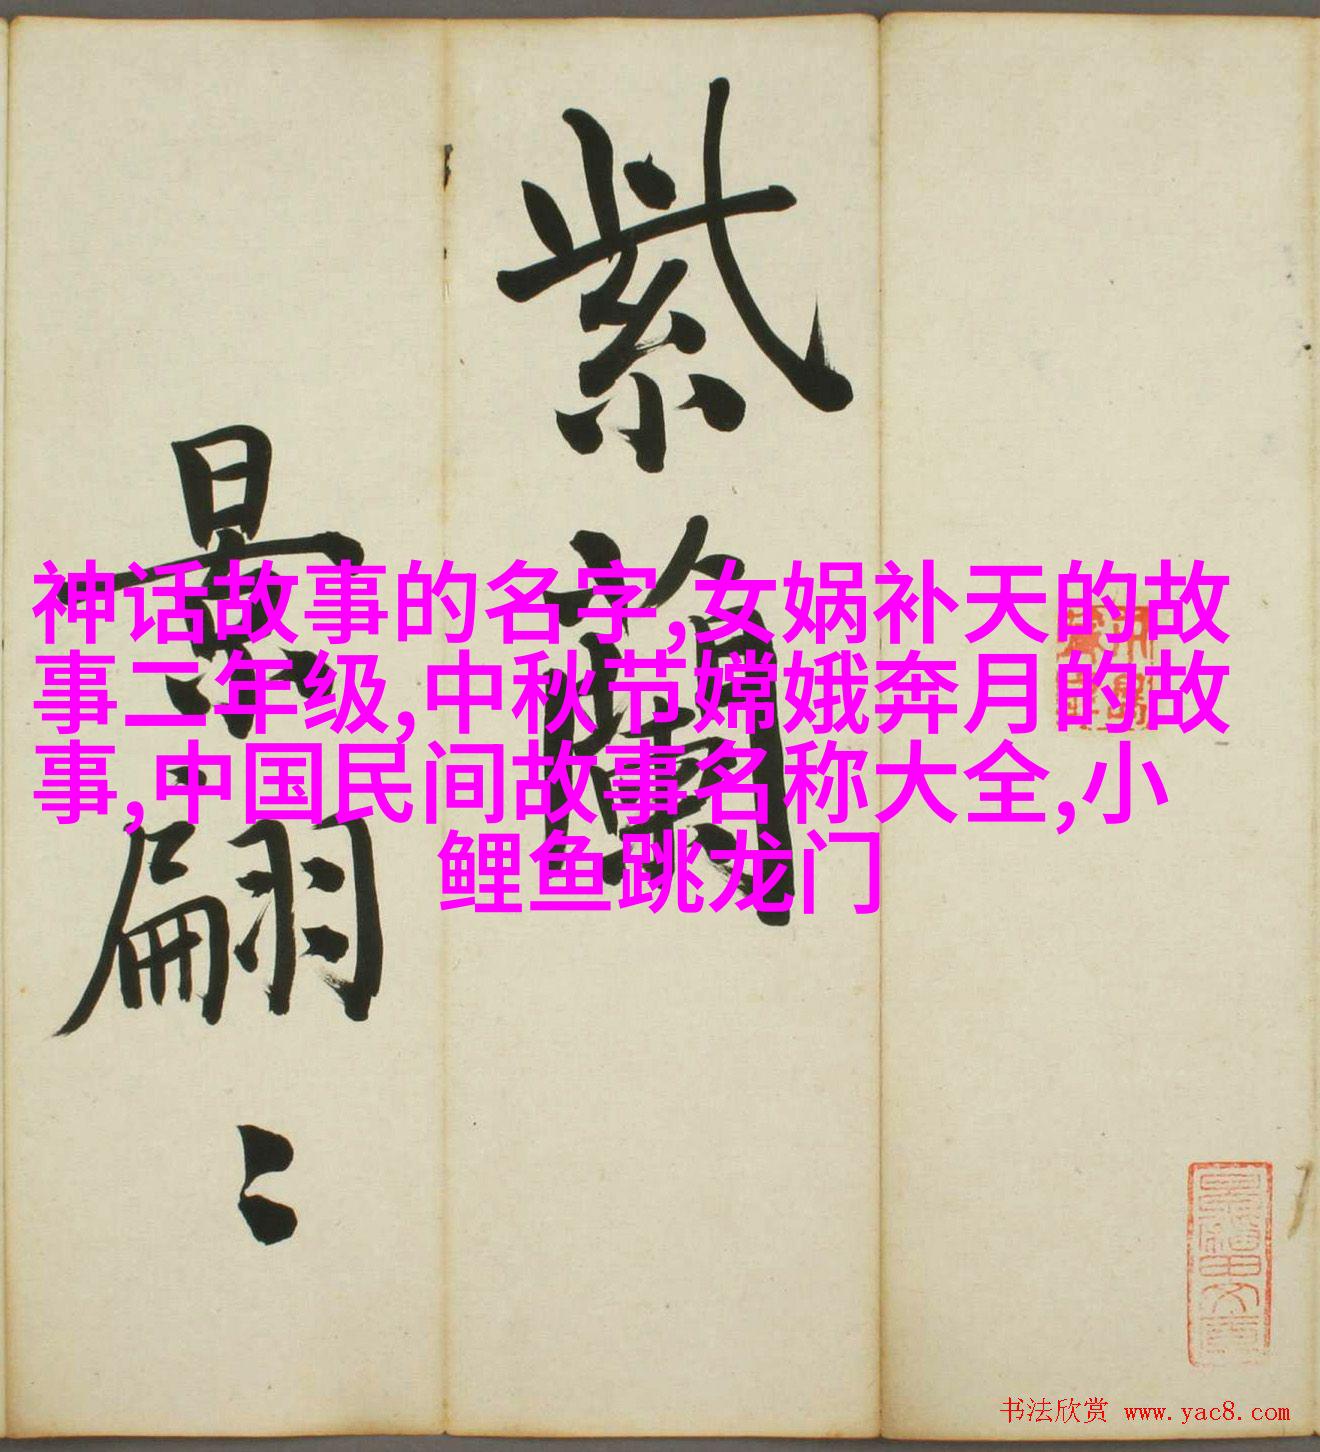 紫蘭
景翩〻
神话故事的名字,女娲补天的故
事二年级,中秋节嫦娥奔月的故
事,中国民间故事名称大全,小
鲤鱼跳龙门
书法欣赏 www.yac8.com